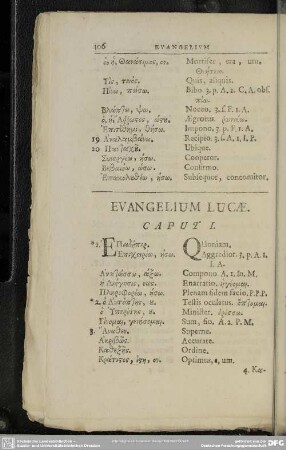 106 EVANGELIUM
ὁ ἡ Θανάσιμος, ου. Mortifer, era, um.
Θνήσκω.
Τὶς, τινὸς. Quis, aliquis.
Πίνω, πώσω. Bibo 3. p. A. 2. C. A. obs.
πίω.
Βλάπτω, ψω. Noceo. 3. f. F. 1. A.
ὁ, ἡ, Ἄῤῥωστος, Ægrotus.
Ἐπιτίθημι, θήσω. Impono, 3. p. F. 1. A.
19 Ἀναλαμβάνω. Recipio, 3. s. A. 1. I. P.
20 Πανταχοῦ. Ubique.
Συνεργέω, ήσω. Cooperor.
Βεβαιόω, ώσω. Confirmo.
Ἐπακολουθέω, ήσω. Subsequor, concomitor.
EVANGELIUM LUCÆ.
CAPUT I.
*1. Ἐπειδήπερ. Quoniam.
Ἐπιχειρέω, ήσω. Aggredior. 3. p. A. 1.
I. A.
Ἀνατάσσω, άξω. Compono A. 1. In. M.
ἡ Διήγησις, εως. Enarratio.
Πληροφορέω, ήσω. Plenam fidem facio. P. P. P.
*2. ὁ Αὐτόπτης, ου. Testis oculatus.
ὁ Ὑπηρέτης, ου. Minister.
Γίνομαι, γενήσομαι. Sum, fio. A. 2. P. M.
3. Ἄνωθεν. Superne.
Ἀκριβῶς. Accurate.
Καθεξῆς. Ordine.
Κράτιστος, η, ον. Optimus, a, um.